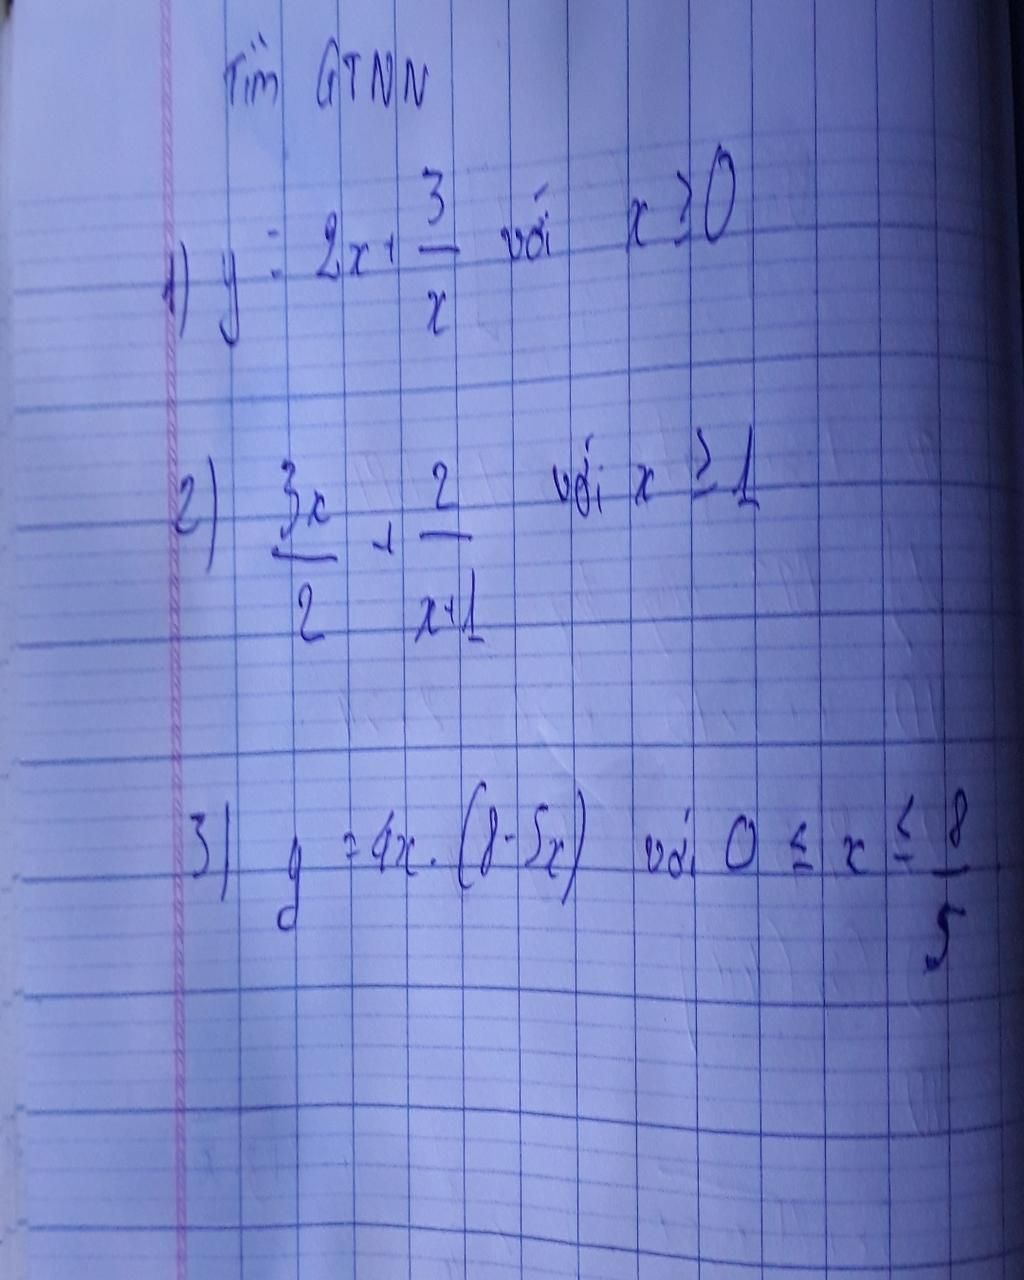 Tìm GTNN
1) y = 2x + 3/x với x ≥ 0
2) 3x/2 + 2/x+1 với x ≥ 1
3) y = 4x.(8-5x) với 0 ≤ x ≤ 8/5